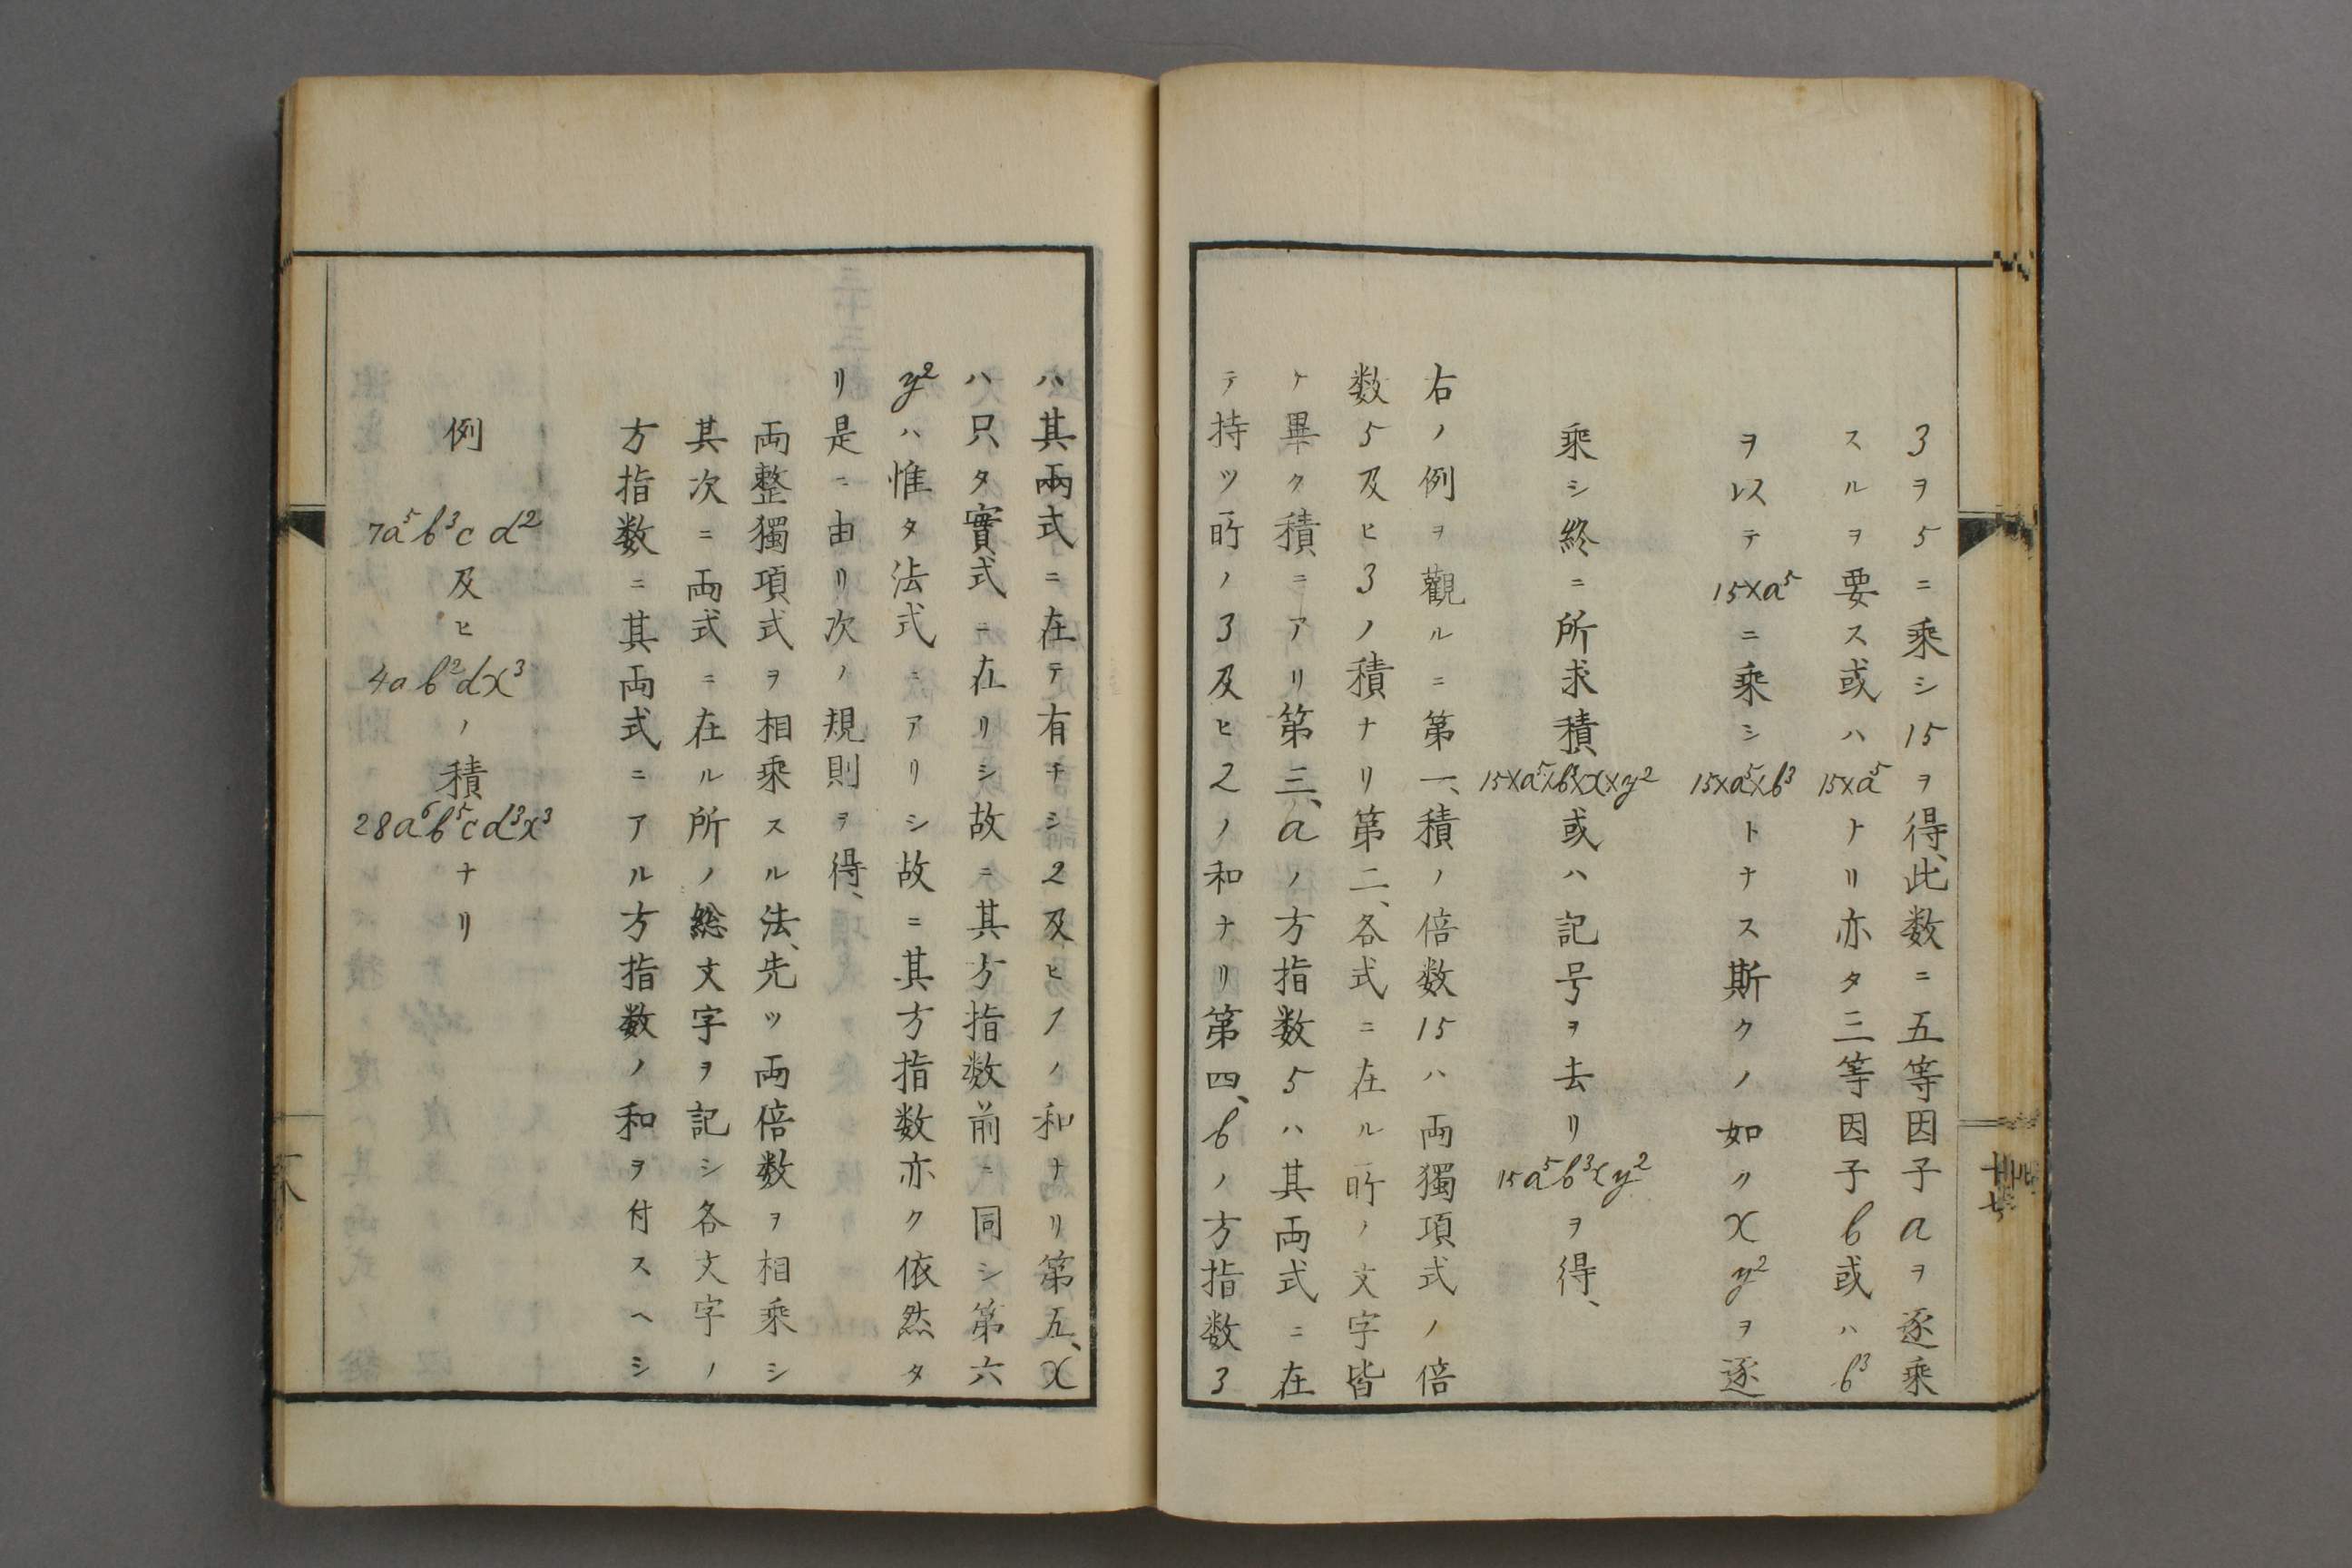 3ヲ5ニ乘シ15ヲ得、此数ニ五等因子aヲ逐乘
スルヲ要ス或ハ15×a⁵ナリ亦タ三等因子b或ハb³
ヲ以テ15×a⁵ニ乘シ15×a⁵×b³トナス斯クノ如クxy²ヲ逐
乘シ終ニ所求積、15×a⁵×b³×x×y²或ハ記号ヲ去リ15a⁵b³xy²ヲ得、
右ノ例ヲ觀ルニ第一、積ノ倍数15ハ両獨項式ノ倍
数5及ヒ3ノ積ナリ第二、各式ニ在ル所ノ文字皆
ナ畢ク積ニアリ第三、aノ方指数5ハ其両式ニ在
テ持ツ所ノ3及ヒ2ノ和ナリ第四、bノ方指数3
ハ其兩式ニ在テ有チシ2及ヒ1ノ和ナリ第五、x
ハ只タ實式ニ在リシ故ニ其方指数前ニ同シ第六
y²ハ惟タ法式ニアリシ故ニ其方指数亦ク依然タ
リ是ニ由リ次ノ規則ヲ得、
両整獨項式ヲ相乘スル法、先ツ両倍数ヲ相乘シ
其次ニ両式ニ在ル所ノ総文字ヲ記シ各文字ノ
方指数ニ其両式ニアル方指数ノ和ヲ付スヘシ
例 7a⁵b³cd² 及ヒ 4ab²dx³ ノ積 28a⁶b⁵cd³x³ ナリ